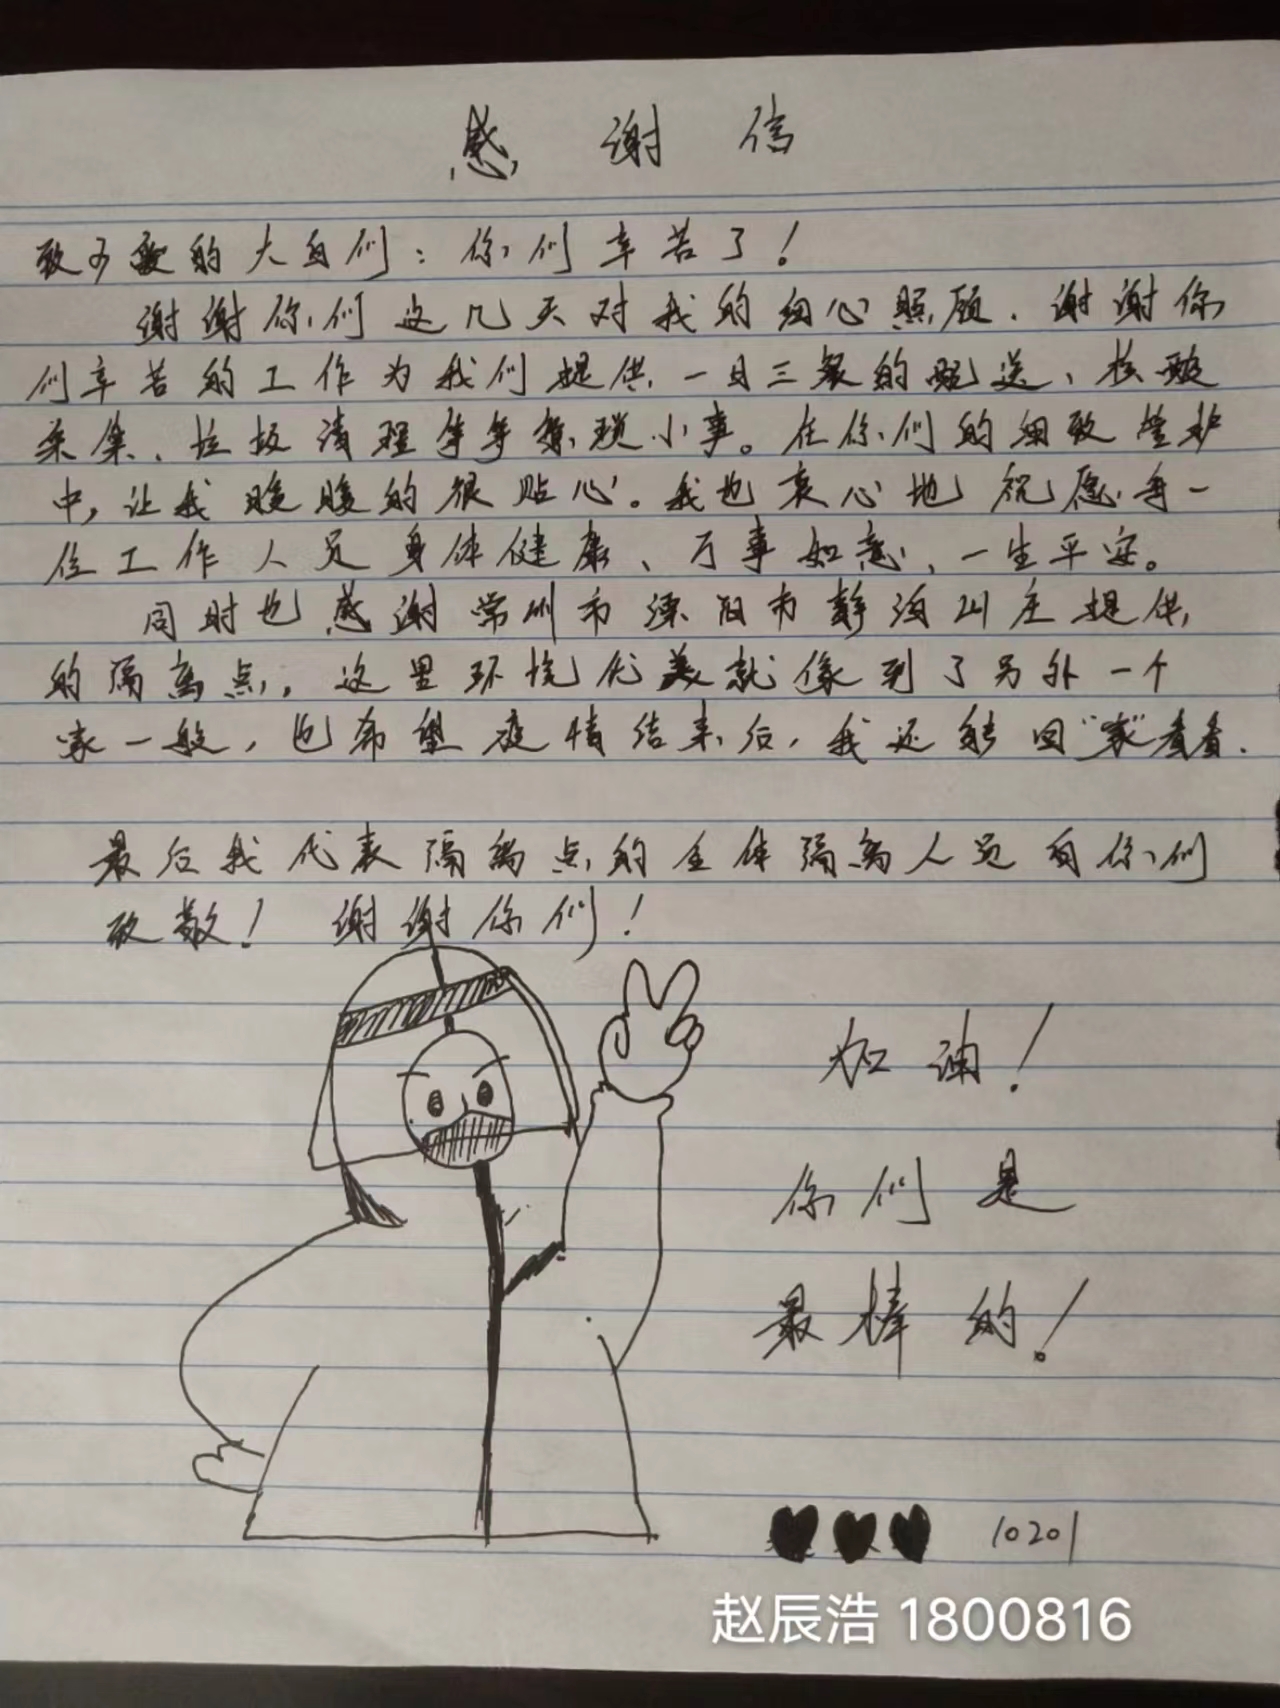 感谢信
致可敬的大白们：你们辛苦了！
谢谢你们这几天对我的细心照顾．谢谢你
们辛苦的工作为我们提供一日三餐的配送、核酸
采集、垃圾清理等等繁琐小事。在你们的细致管护
中，让我暖暖的很贴心。我也衷心地祝愿每一
位工作人员身体健康、万事如意、一生平安。
同时也感谢常州市溧阳市静泊山庄提供
的隔离点，这里环境优美就像到了另外一个
家一般，也希望疫情结束后，我还能回“家”看看．
最后我代表隔离点的全体隔离人员向你们
致敬！谢谢你们！
加油！
你们是
最棒的！
10201
赵辰浩 1800816